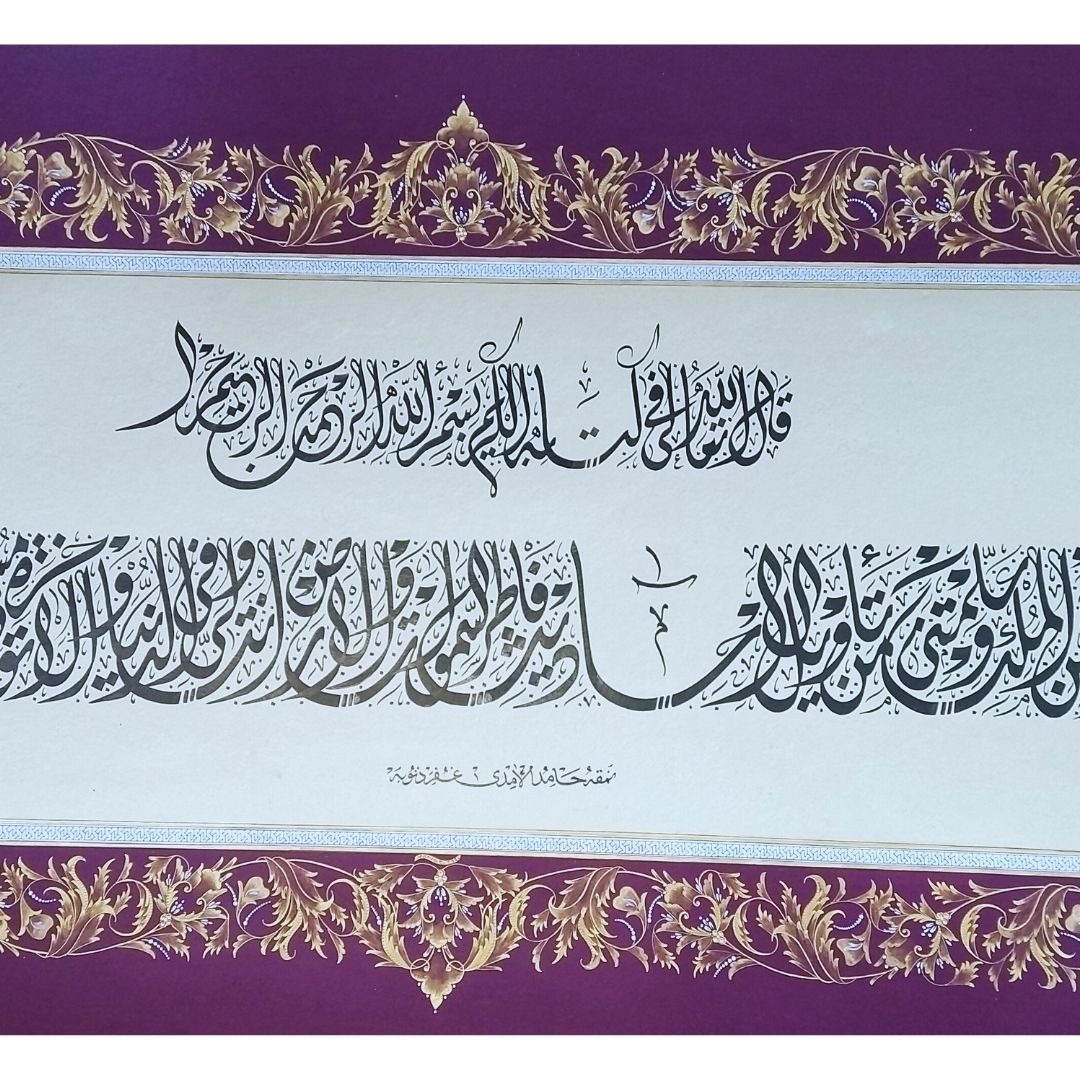 قال الله تعالى في كتابه الكريم بسم الله الرحمن الرحيم
من الملك وعلمتني من تأويل الأحاديث فاطر السموات والأرض أنت وليي في الدنيا والآخرة
نمقه حامد الآمدى غفر ذنوبه